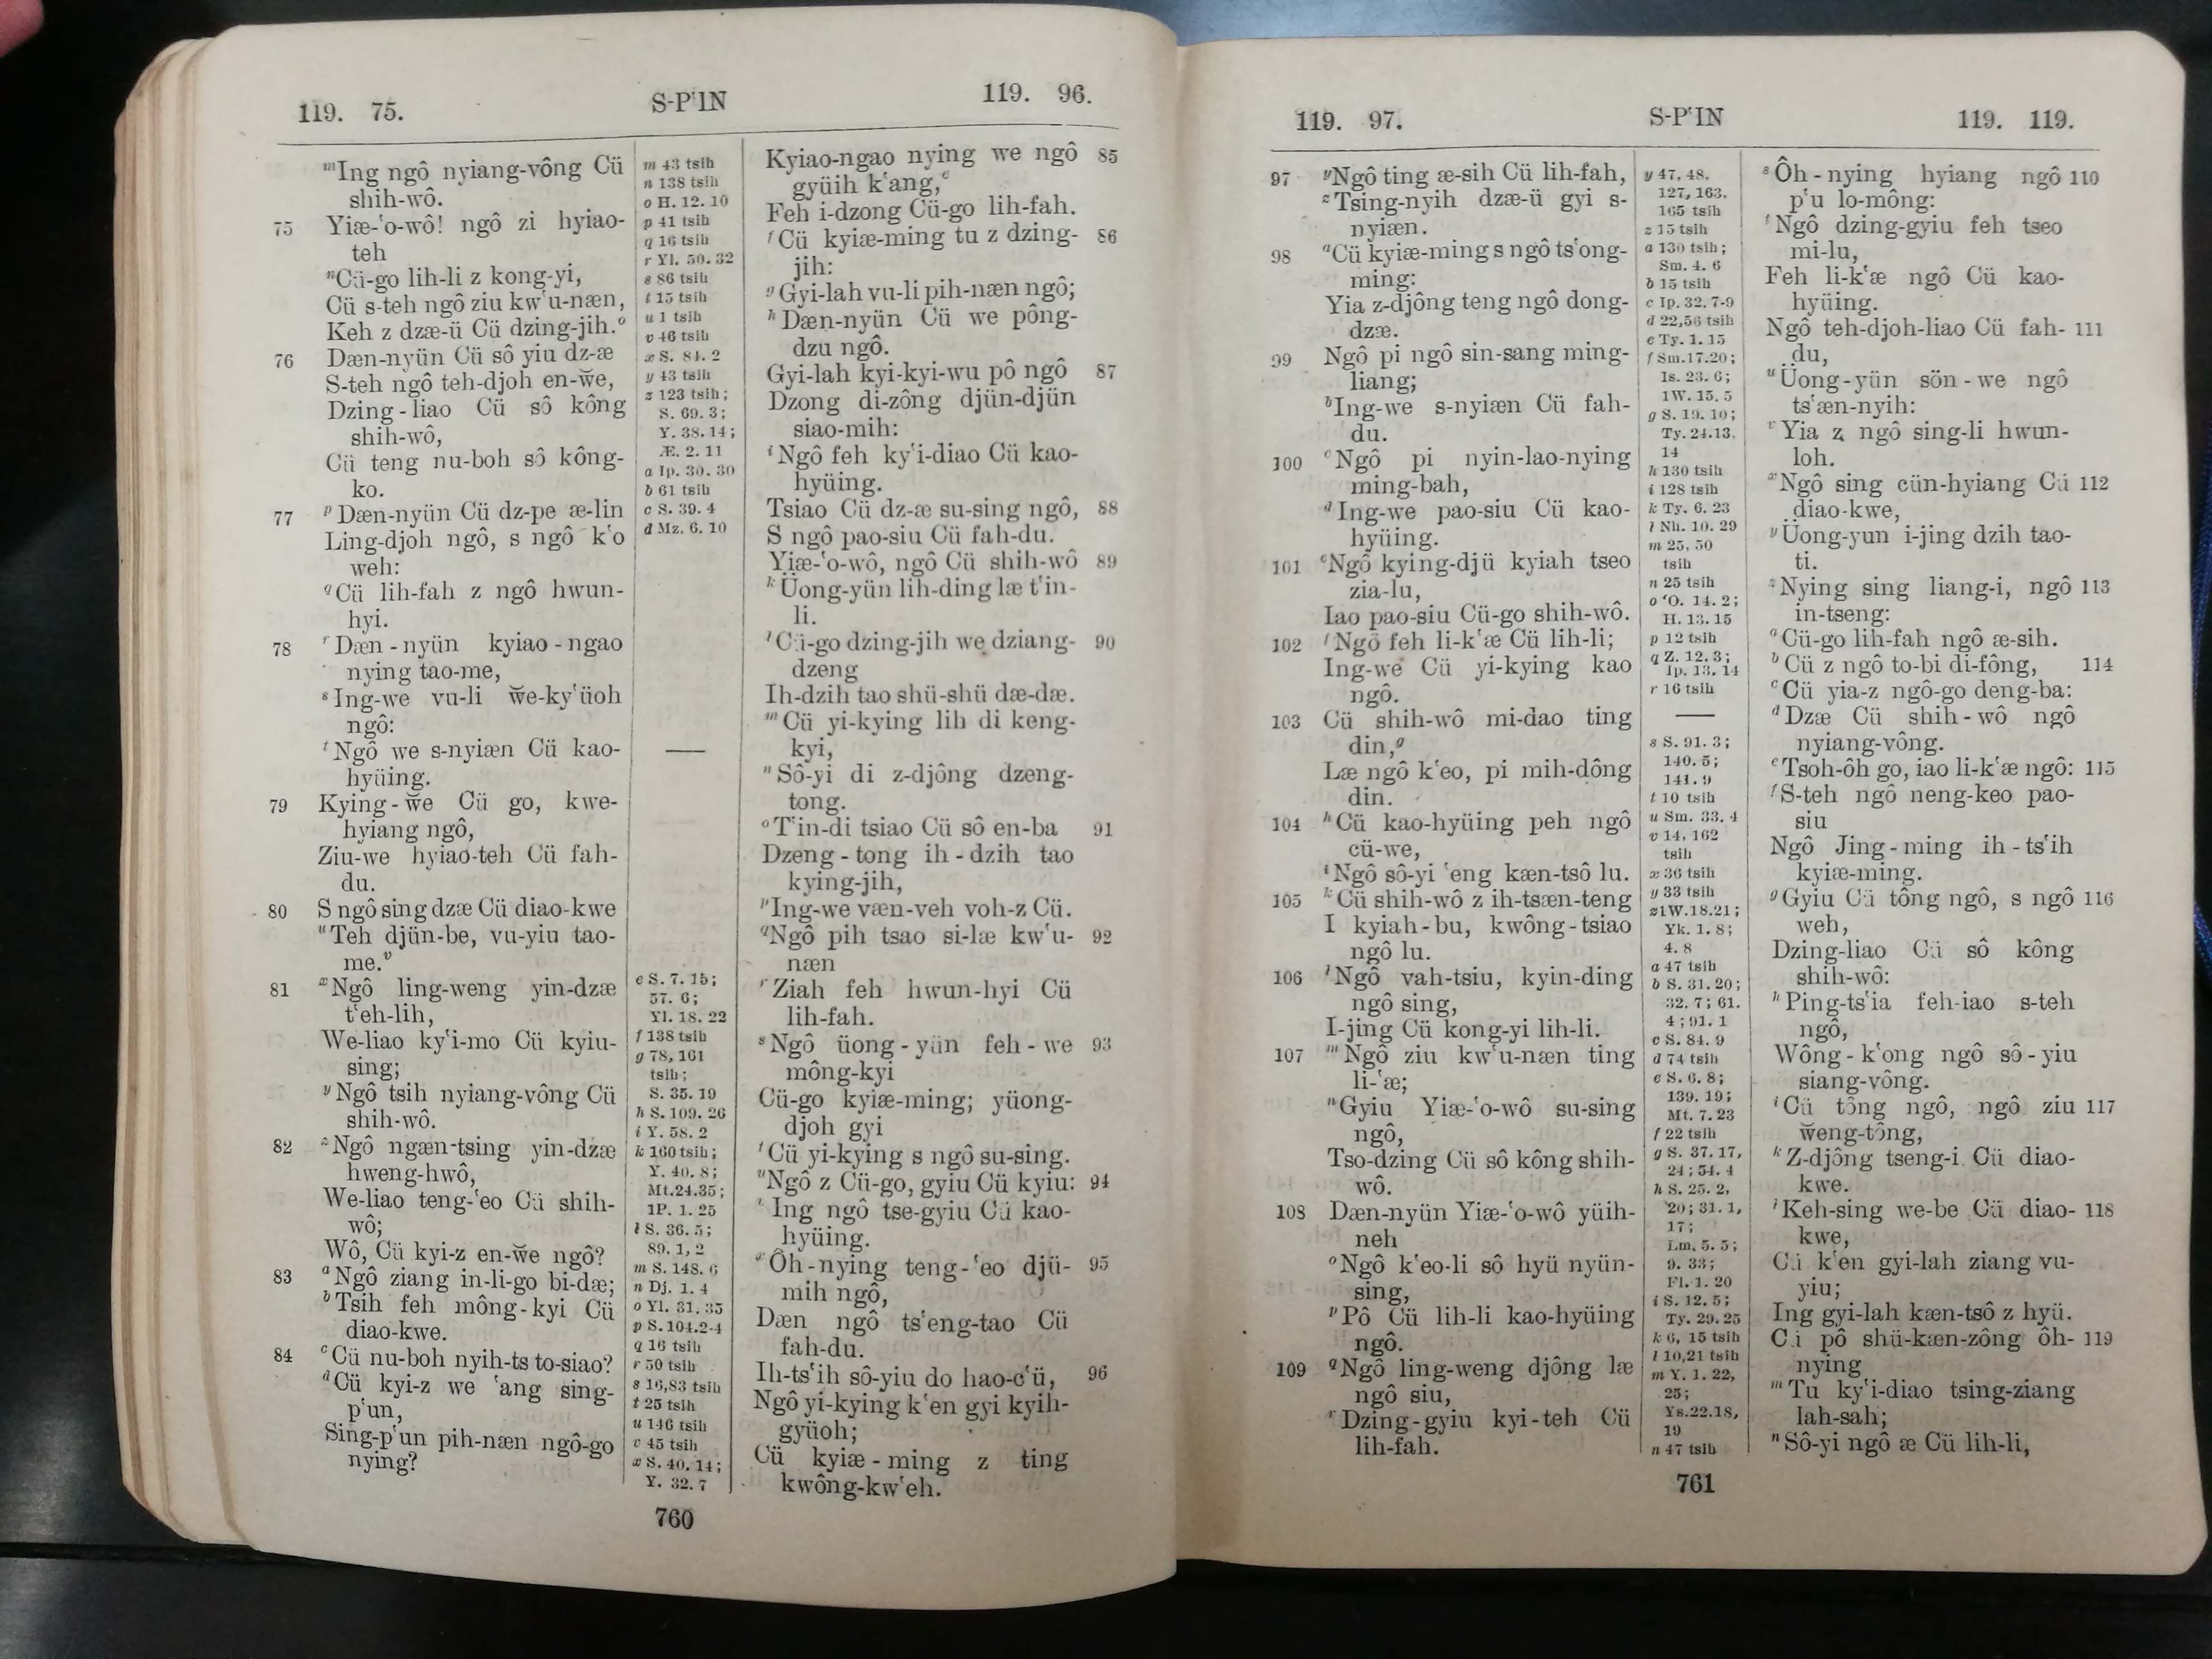 119. 75.
S-P‘IN
119. 96.
ᵐIng ngô nyiang-vông Cü
shih-wô.
75 Yiæ-‘o-wô! ngô zi hyiao-
teh
ⁿCü-go lih-li z kong-yi,
Cü s-teh ngô ziu kw‘u-næn,
Keh z dzæ-ü Cü dzing-jih.ᵒ
76 Dæn-nyün Cü sô yiu dz-æ
S-teh ngô teh-djoh en-w̆e,
Dzing-liao Cü sô kông
shih-wô,
Cü teng nu-boh sô kông-
ko.
77 ᵖDæn-nyün Cü dz-pe æ-lin
Ling-djoh ngô, s ngô k‘o
weh:
ᵠCü lih-fah z ngô hwun-
hyi.
78 ʳDæn-nyün kyiao-ngao
nying tao-me,
ˢIng-we vu-li w̆e-ky‘üoh
ngô:
ᵗNgô we s-nyiæn Cü kao-
hyüing.
79 Kying-w̆e Cü go, kwe-
hyiang ngô,
Ziu-we hyiao-teh Cü fah-
du.
80 S ngô sing dzæ Cü diao-kwe
ᵘTeh djün-be, vu-yiu tao-
me.ᵛ
81 ˣNgô ling-weng yin-dzæ
t‘eh-lih,
We-liao ky‘i-mo Cü kyiu-
sing;
ʸNgô tsih nyiang-vông Cü
shih-wô.
82 ᶻNgô ngæn-tsing yin-dzæ
hweng-hwô,
We-liao teng-‘eo Cü shih-
wô;
Wô, Cü kyi-z en-w̆e ngô?
83 ᵃNgô ziang in-li-go bi-dæ;
ᵇTsih feh mông-kyi Cü
diao-kwe.
84 ᶜCü nu-boh nyih-ts to-siao?
ᵈCü kyi-z we ‘ang sing-
p‘un,
Sing-p‘un pih-næn ngô-go
nying?
m 43 tsih
n 138 tsih
o H. 12. 10
p 41 tsih
q 16 tsih
r Yl. 50. 32
s 86 tsih
t 15 tsih
u 1 tsih
v 46 tsih
x S. 84. 2
y 43 tsih
z 123 tsih;
S. 69. 3;
Y. 38. 14;
Æ. 2. 11
a Ip. 30. 30
b 61 tsih
c S. 39. 4
d Mz. 6. 10
e S. 7. 15;
57. 6;
Yl. 18. 22
f 138 tsih
g 78, 161
tsih;
S. 35. 19
h S. 109. 26
i Y. 58. 2
k 160 tsih;
Y. 40. 8;
Mt.24.35;
1P. 1. 25
l S. 36. 5;
89. 1, 2
m S. 148. 6
n Dj. 1. 4
o Yl. 31. 35
p S. 104.2-4
q 16 tsih
r 50 tsih
s 16,83 tsih
t 25 tsih
u 146 tsih
v 45 tsih
x S. 40. 14;
Y. 32. 7
Kyiao-ngao nying we ngô 85
gyüih k‘ang,ᵉ
Feh i-dzong Cü-go lih-fah.
ᶠCü kyiæ-ming tu z dzing- 86
jih:
ᵍGyi-lah vu-li pih-næn ngô;
ʰDæn-nyün Cü we pông-
dzu ngô.
Gyi-lah kyi-kyi-wu pô ngô 87
Dzong di-zông djün-djün
siao-mih:
ⁱNgô feh ky‘i-diao Cü kao-
hyüing.
Tsiao Cü dz-æ su-sing ngô, 88
S ngô pao-siu Cü fah-du.
Yiæ-‘o-wô, ngô Cü shih-wô 89
ᵏÜong-yün lih-ding læ t‘in-
li.
ˡCü-go dzing-jih we dziang- 90
dzeng
Ih-dzih tao shü-shü dæ-dæ.
ᵐCü yi-kying lih di keng-
kyi,
ⁿSô-yi di z-djông dzeng-
tong.
ᵒT‘in-di tsiao Cü sô en-ba 91
Dzeng-tong ih-dzih tao
kying-jih,
ᵖIng-we væn-veh voh-z Cü.
ᵠNgô pih tsao si-læ kw‘u- 92
næn
ʳZiah feh hwun-hyi Cü
lih-fah.
ˢNgô üong-yün feh-we 93
mông-kyi
Cü-go kyiæ-ming; yüong-
djoh gyi
ᵗCü yi-kying s ngô su-sing.
ᵘNgô z Cü-go, gyiu Cü kyiu: 94
ᵛIng ngô tse-gyiu Cü kao-
hyüing.
ˣÔh-nying teng-‘eo djü- 95
mih ngô,
Dæn ngô ts‘eng-tao Cü
fah-du.
Ih-ts‘ih sô-yiu do hao-c‘ü, 96
Ngô yi-kying k‘en gyi kyih-
gyüoh;
Cü kyiæ-ming z ting
kwông-kw‘eh.
760
119. 97.
S-P‘IN
119. 119.
97 ʸNgô ting æ-sih Cü lih-fah,
ᶻTsing-nyih dzæ-ü gyi s-
nyiæn.
98 ᵃCü kyiæ-ming s ngô ts‘ong-
ming:
Yia z-djông teng ngô dong-
dzæ.
99 Ngô pi ngô sin-sang ming-
liang;
ᵇIng-we s-nyiæn Cü fah-
du.
100 ᶜNgô pi nyin-lao-nying
ming-bah,
ᵈIng-we pao-siu Cü kao-
hyüing.
101 ᵉNgô kying-djü kyiah tseo
zia-lu,
Iao pao-siu Cü-go shih-wô.
102 ᶠNgô feh li-k‘æ Cü lih-li;
Ing-we Cü yi-kying kao
ngô.
103 Cü shih-wô mi-dao ting
din,ᵍ
Læ ngô k‘eo, pi mih-dông
din.
104 ʰCü kao-hyüing peh ngô
cü-we,
ⁱNgô sô-yi ‘eng kæn-tsô lu.
105 ᵏCü shih-wô z ih-tsæn-teng
I kyiah-bu, kwông-tsiao
ngô lu.
106 ˡNgô vah-tsiu, kyin-ding
ngô sing,
I-jing Cü kong-yi lih-li.
107 ᵐNgô ziu kw‘u-næn ting
li-‘æ;
ⁿGyiu Yiæ-‘o-wô su-sing
ngô,
Tso-dzing Cü sô kông shih-
wô.
108 Dæn-nyün Yiæ-‘o-wô yüih-
neh
ᵒNgô k‘eo-li sô hyü nyün-
sing,
ᵖPô Cü lih-li kao-hyüing
ngô.
109 ᵠNgô ling-weng djông læ
ngô siu,
ʳDzing-gyiu kyi-teh Cü
lih-fah.
y 47, 48.
127, 163.
165 tsih
z 15 tsih
a 130 tsih;
Sm. 4. 6
b 15 tsih
c Ip. 32. 7-9
d 22,56 tsih
e Ty. 1. 15
f Sm.17.20;
Is. 23. 6;
1W. 15. 5
g S. 19. 10;
Ty. 24.13,
14
h 130 tsih
i 128 tsih
k Ty. 6. 23
l Nh. 10. 29
m 25, 50
tsih
n 25 tsih
o ‘O. 14. 2;
H. 13. 15
p 12 tsih
q Z. 12. 3;
Ip. 13. 14
r 16 tsih
s S. 91. 3;
140. 5;
141. 9
t 10 tsih
u Sm. 33. 4
v 14, 162
tsih
x 36 tsih
y 33 tsih
z1W.18.21;
Yk. 1. 8;
4. 8
a 47 tsih
b S. 31. 20;
32. 7; 61.
4; 91. 1
c S. 84. 9
d 74 tsih
e S. 6. 8;
139. 19;
Mt. 7. 23
f 22 tsih
g S. 37. 17,
24; 54. 4
h S. 25. 2,
20; 31. 1,
17;
Lm. 5. 5;
9. 33;
Fl. 1. 20
i S. 12. 5;
Ty. 29. 25
k 6, 15 tsih
l 10,21 tsih
m Y. 1. 22,
25;
Ys.22.18,
19
n 47 tsih
ˢÔh-nying hyiang ngô 110
p‘u lo-mông:
ᵗNgô dzing-gyiu feh tseo
mi-lu,
Feh li-k‘æ ngô Cü kao-
hyüing.
Ngô teh-djoh-liao Cü fah- 111
du,
ᵘÜong-yün sön-we ngô
ts‘æn-nyih:
ᵛYia z ngô sing-li hwun-
loh.
ˣNgô sing cün-hyiang Cü 112
diao-kwe,
ʸÜong-yun i-jing dzih tao-
ti.
ᶻNying sing liang-i, ngô 113
in-tseng:
ᵃCü-go lih-fah ngô æ-sih.
ᵇCü z ngô to-bi di-fông, 114
ᶜCü yia-z ngô-go deng-ba:
ᵈDzæ Cü shih-wô ngô
nyiang-vông.
ᵉTsoh-ôh go, iao li-k‘æ ngô: 115
ᶠS-teh ngô neng-keo pao-
siu
Ngô Jing-ming ih-ts‘ih
kyiæ-ming.
ᵍGyiu Cü tông ngô, s ngô 116
weh,
Dzing-liao Cü sô kông
shih-wô:
ʰPing-ts‘ia feh-iao s-teh
ngô,
Wông-k‘ong ngô sô-yiu
siang-vông.
ⁱCü tông ngô, ngô ziu 117
w̆eng-tông,
ᵏZ-djông tseng-i Cü diao-
kwe.
ˡKeh-sing we-be Cü diao- 118
kwe,
Cü k‘en gyi-lah ziang vu-
yiu;
Ing gyi-lah kæn-tsô z hyü.
Cü pô shü-kæn-zông ôh- 119
nying
ᵐTu ky‘i-diao tsing-ziang
lah-sah;
ⁿSô-yi ngô æ Cü lih-li,
761